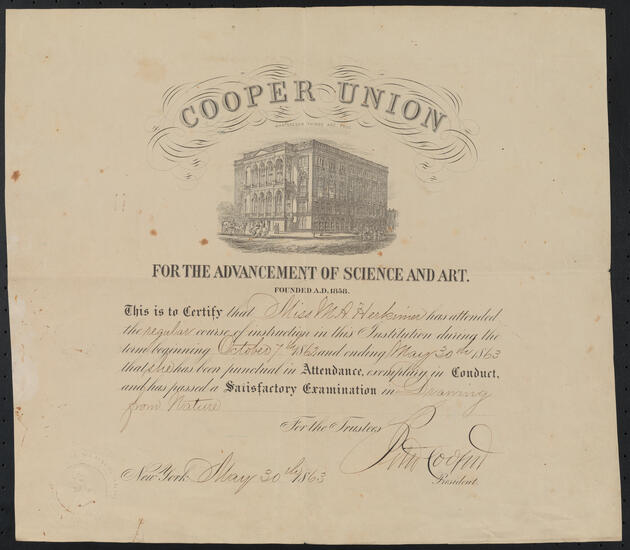 COOPER UNION
FOR THE ADVANCEMENT OF SCIENCE AND ART.
FOUNDED A.D. 1858.
This is to Certify that Miss M A Herkimer has attended
the regular course of instruction in this Institution during the
term beginning October 7th 1863 and ending May 30th 1863
that she has been punctual in Attendance, exemplary in Conduct,
and has passed a Satisfactory Examination in Drawing
from Nature
For the Trustees
Peter Cooper
President.
New York May 30th 1863